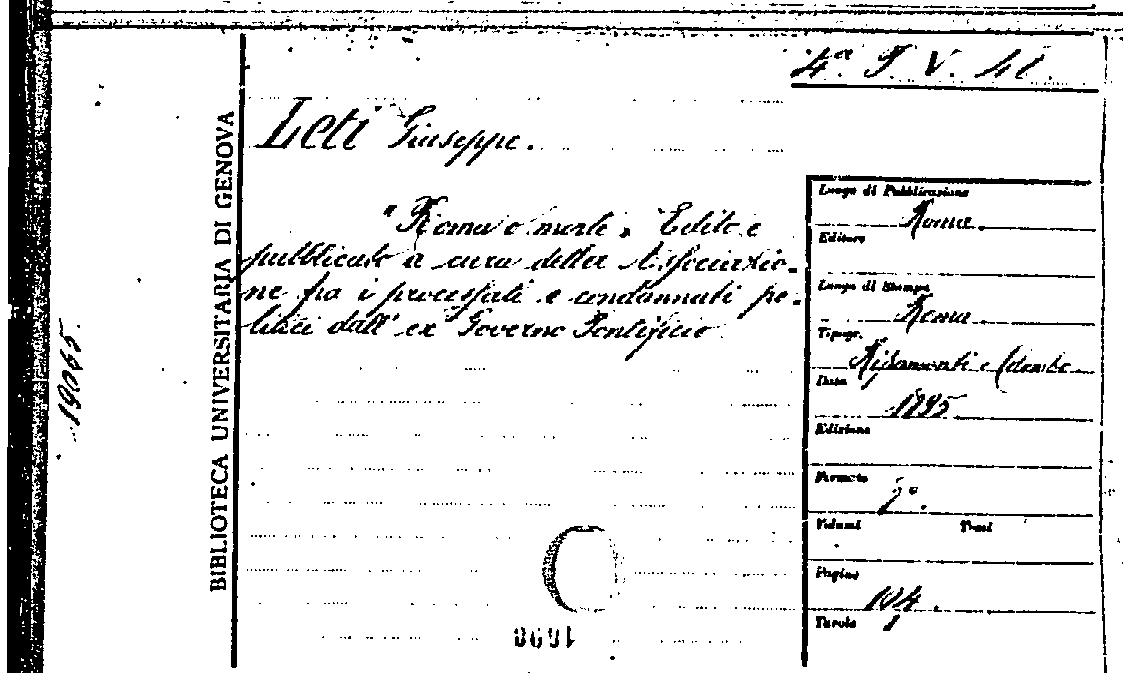 4ª. F. V. 41.
Leti Giuseppe.
"Roma o morte". Edito e
pubblicato a cura della Associazio-
ne fra i processati e condannati po-
litici dall' ex Governo Pontificio
BIBLIOTECA UNIVERSITARIA DI GENOVA
19065
Luogo di Pubblicazione
Roma.
Editore
Luogo di Stampa
Roma.
Tipogr.
Ripamonti e Colombo
Data
1895
Edizione
Formato
Volumi Tomi
Pagine
104.
Tavole
1